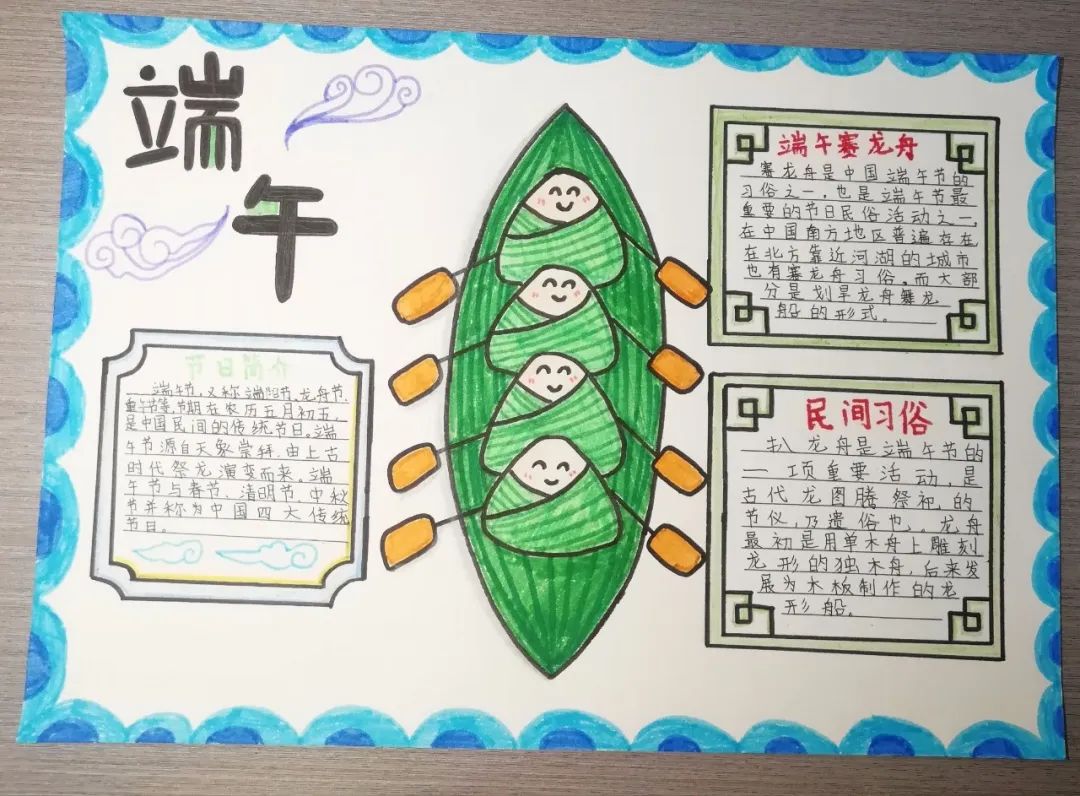 端
午
节日简介
端午节,又称端阳节、龙舟节、
重午节等,节期在农历五月初五,
是中国民间的传统节日。端
午节源自天象崇拜,由上古
时代祭龙演变而来。端
午节与春节、清明节、中秋
节并称为中国四大传统
节日。
端午赛龙舟
赛龙舟是中国端午节的
习俗之一,也是端午节最
重要的节日民俗活动之一,
在中国南方地区普遍在在,
在北方靠近河湖的城市
也有赛龙舟习俗。而大部
分是划旱龙舟舞龙
船的形式。
民间习俗
扒龙舟是端午节的
一项重要活动,是
古代龙图腾祭祀,的
节仪,乃遗俗也。龙舟
最初是用单木舟上雕刻
龙形的独木舟,后来发
展为木板制作的龙
形船。